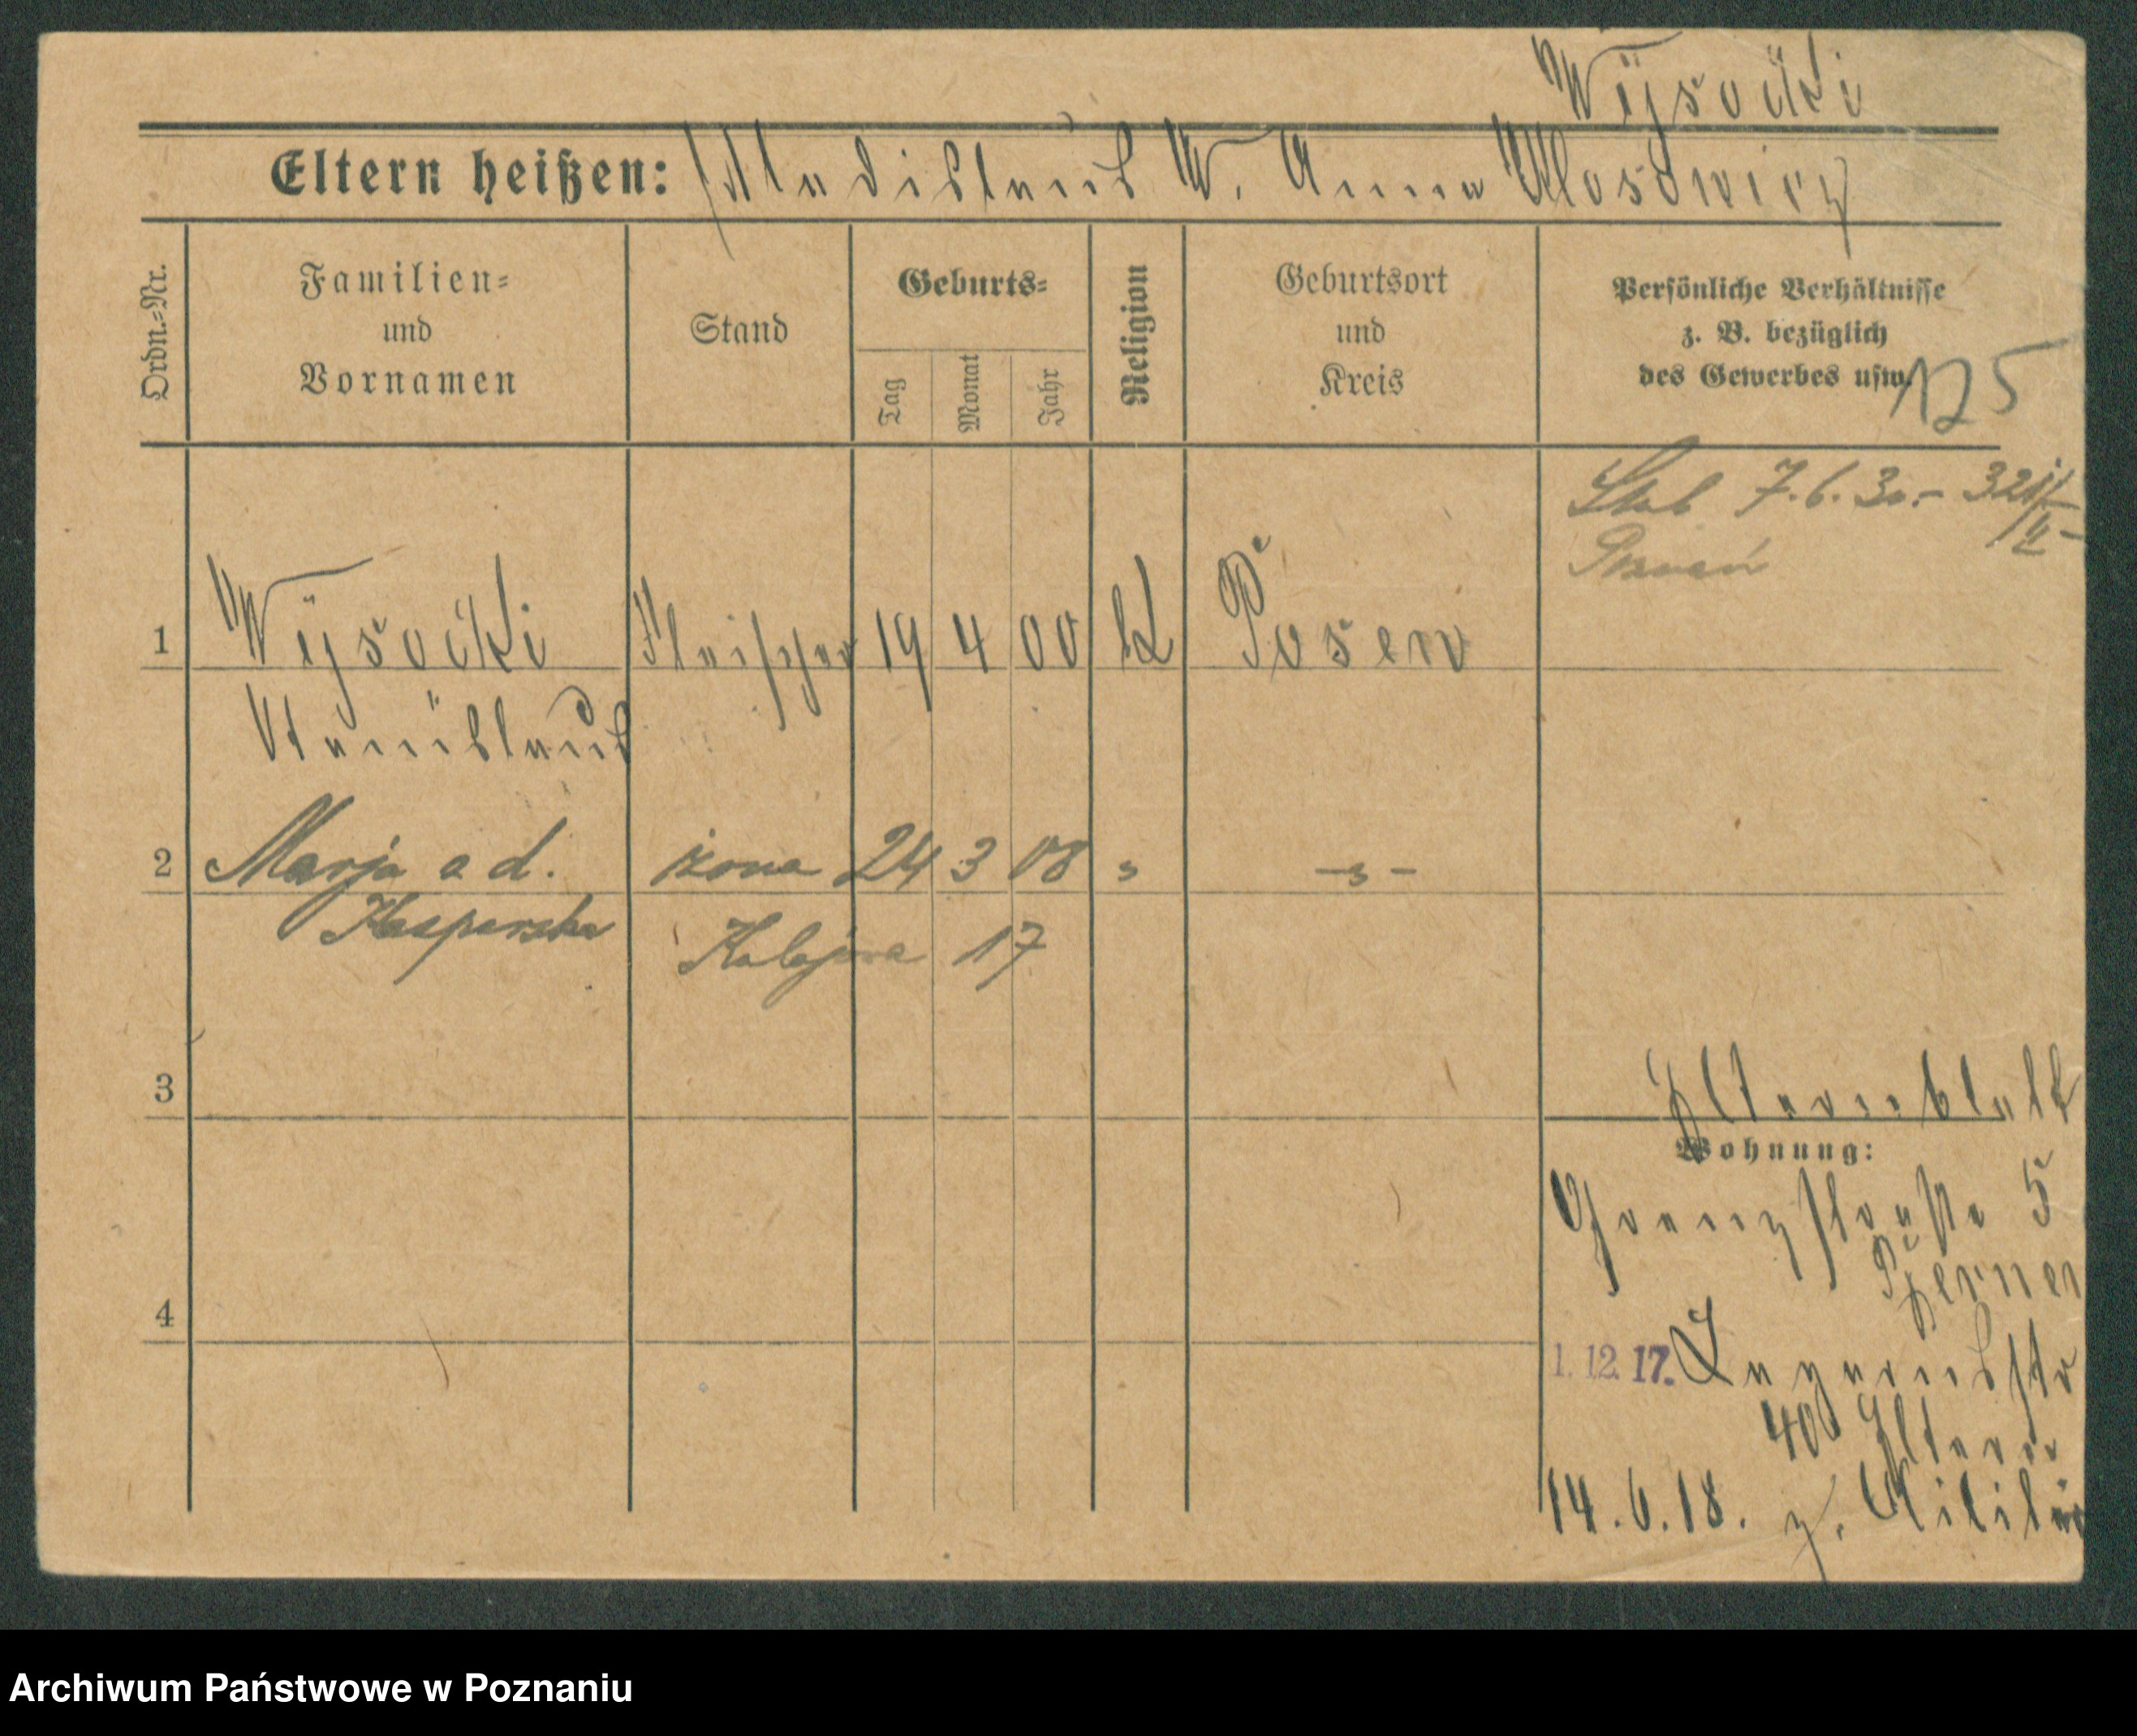 Wÿsocki
Eltern heißen: Wladislaus W. Anna
Ordn.=Nr.
Familien=
und
Vornamen
Stand
Geburts=
Tag
Monat
Jahr
Religion
Geburtsort
und
Kreis
Persönliche Verhältnisse
z. B. bezüglich
des Gewerbes usw.
Ślub 7.6.30.-
Poznań
1 Wÿsocki Fleischer 19 4 00 K Posen
Stanislaus
2 Marja a d. żona 24 3 08 " -"-
Kasperska 17
3
Elternblatt
Wohnung:
Grenzstraße 5
4
1. 12. 17.
40 Eltern
14.6.18. z. Militär
Archiwum Państwowe w Poznaniu